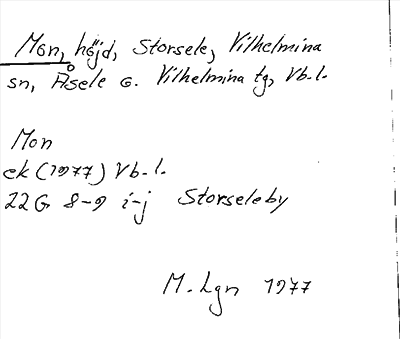 Mon, höjd, Storsele, Vilhelmina
sn, Åsele o. Vilhelmina tg, Vb.l.
Mon
ek (1977) Vb.l.
22G 8-9 i-j Storseleby
M. Lgn 1977